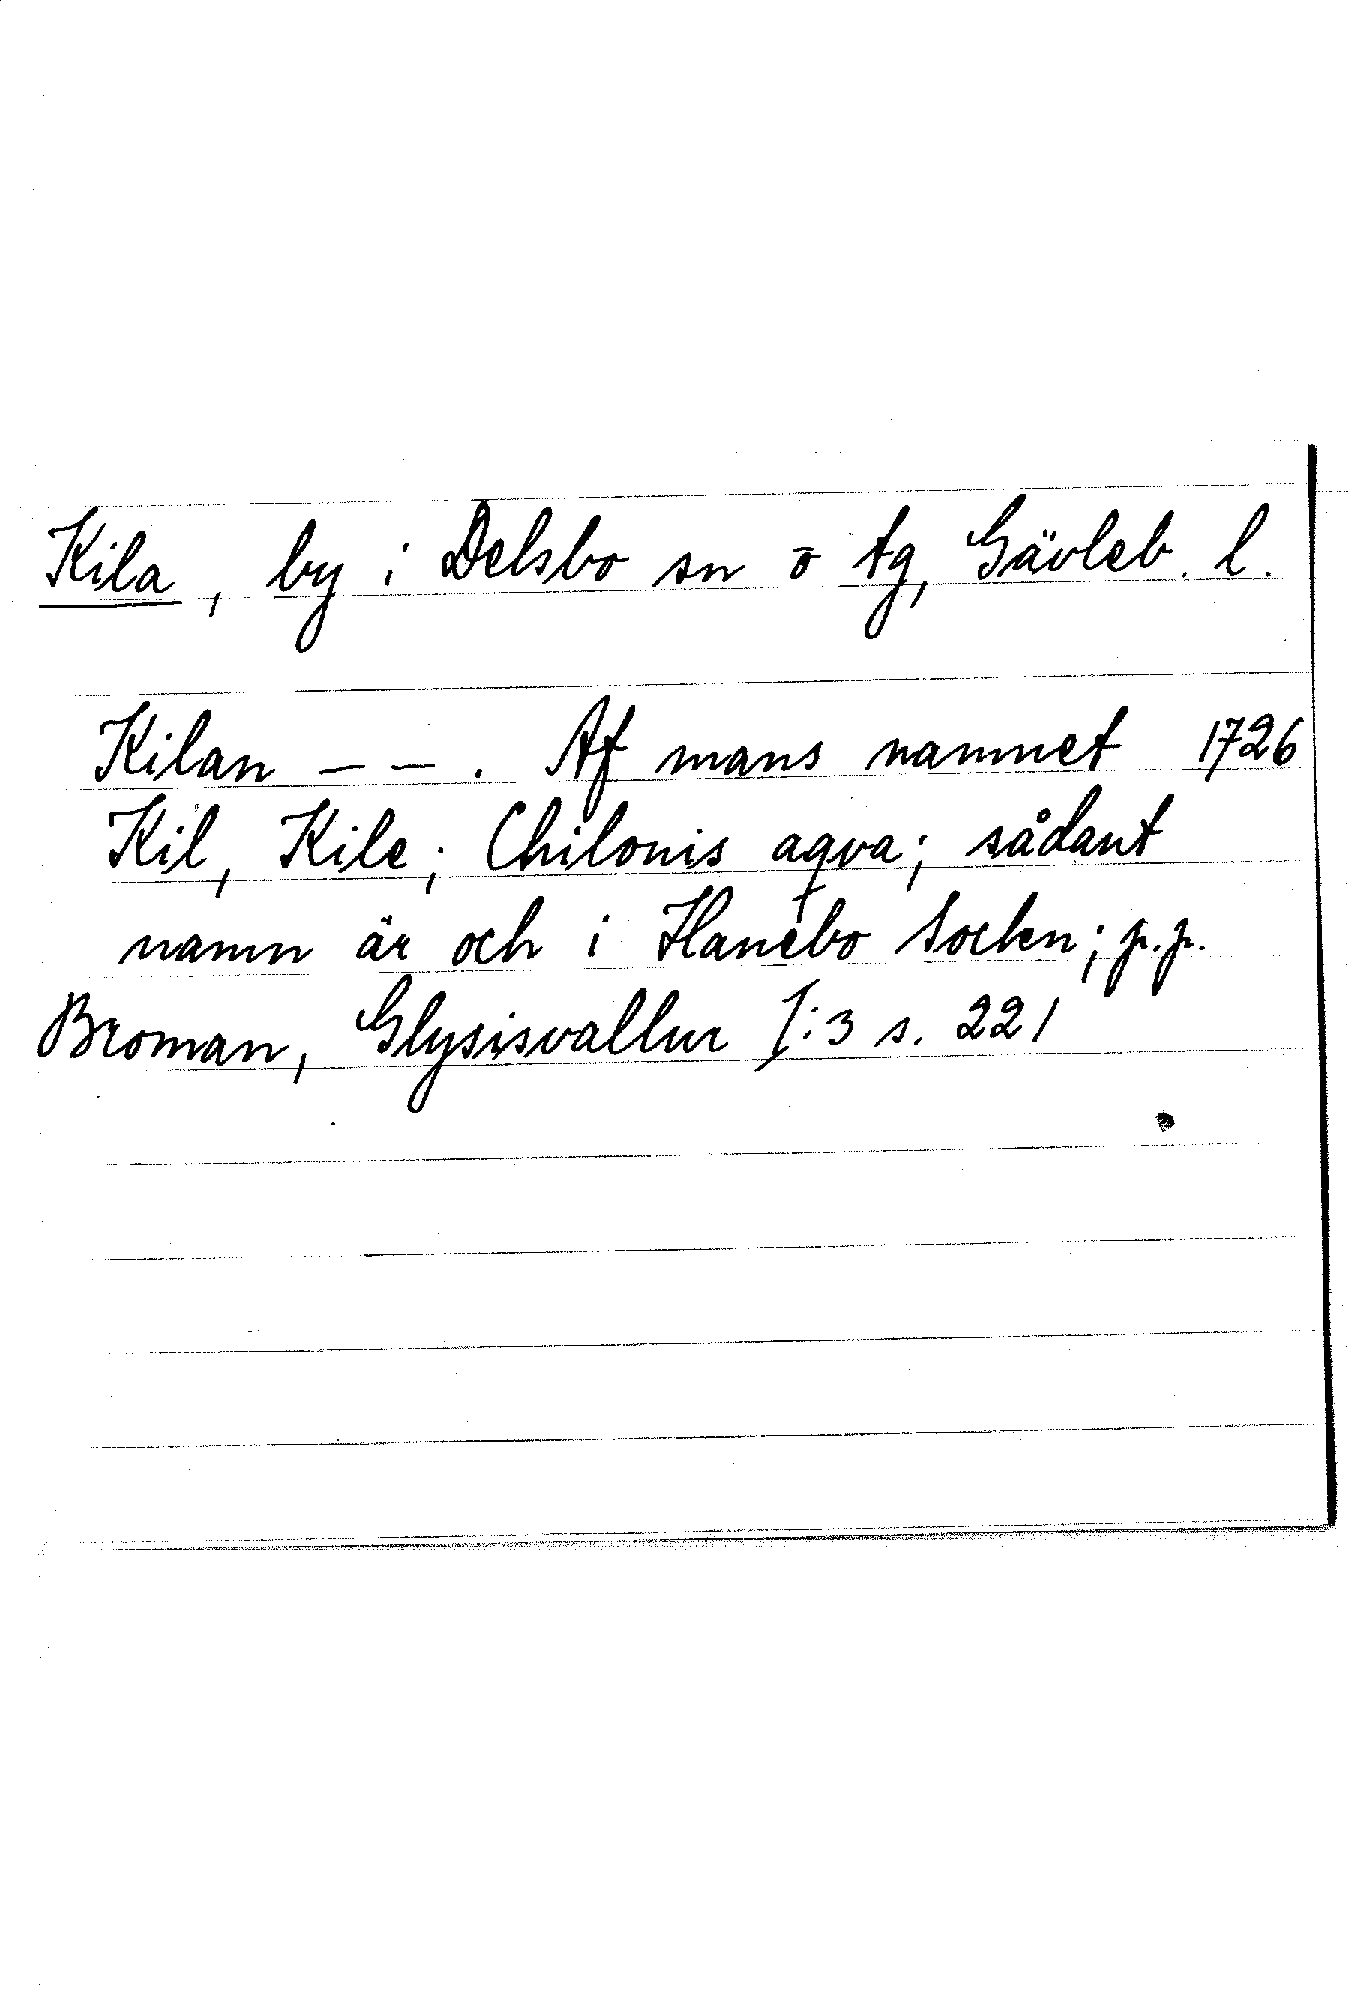 Kila, by i Delsbo sn o tg, Gävleb. l.
Kilan — — . Af mans namnet 1726
Kil, Kile; Chilonis aqva; sådant
namn är och i Hanebo Socken; p.p.
Broman, Glysisvallur I:3 s. 221